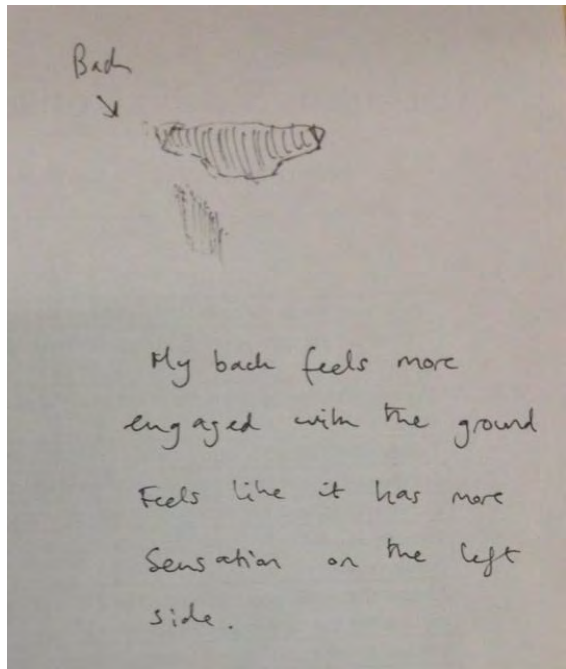 Back
My back feels more
engaged with the ground
Feels like it has more
Sensation on the left
side.